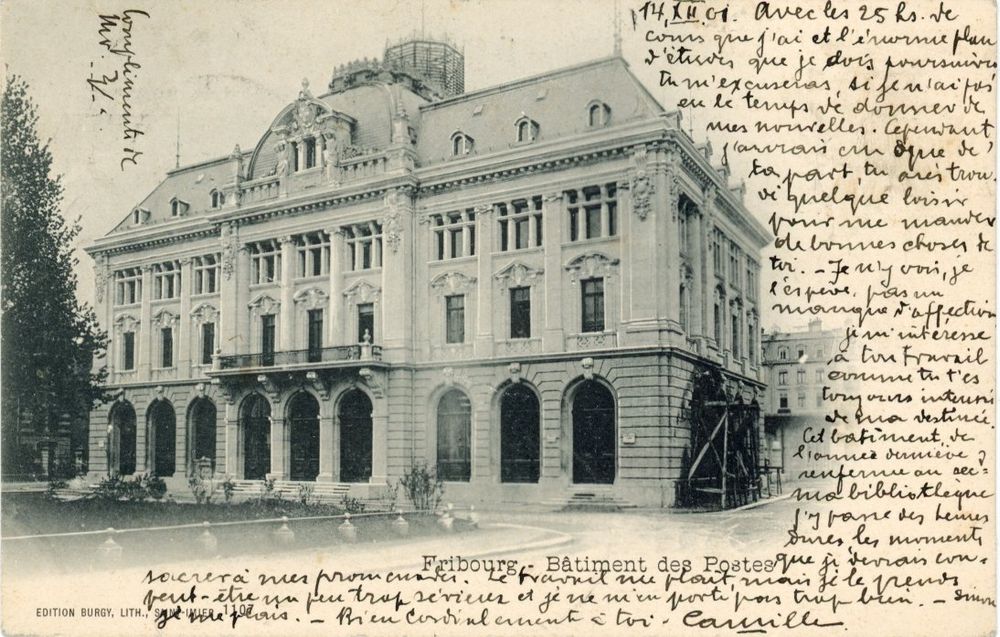 Compliments de
Mr.
14. XII 01. Avec les 25 hs. de
cours que j'ai et l'énorme plan
d'études que je dois poursuivre
tu m'excuseras, si je n'ai pas
eu le temps de donner de
mes nouvelles. Cependant
j'aurais cru que de
ta part, tu aies trou-
vé quelque loisir
pour me mander
de bonnes choses de
toi. - Je n'y vois, je
l'espère, pas un
manque d'affection
je m'intéresse
à ton travail
comme tu t'es
toujours intéressé
de ma destinée
Cet bâtiment, de
l'année dernière,
renferme au
ma bibliothèque
j'y passe des heures
les moments
que je devrais con-
sacrer à mes promenades. Le travail me plaît, mais je le prends
peut-être un peu trop sérieux et je ne m'en porte pas trop bien. -
je me plais. - Bien cordialement à toi - Camille
Fribourg - Bâtiment des Postes
EDITION BURGY, LITH., SAINT-IMIER 1107